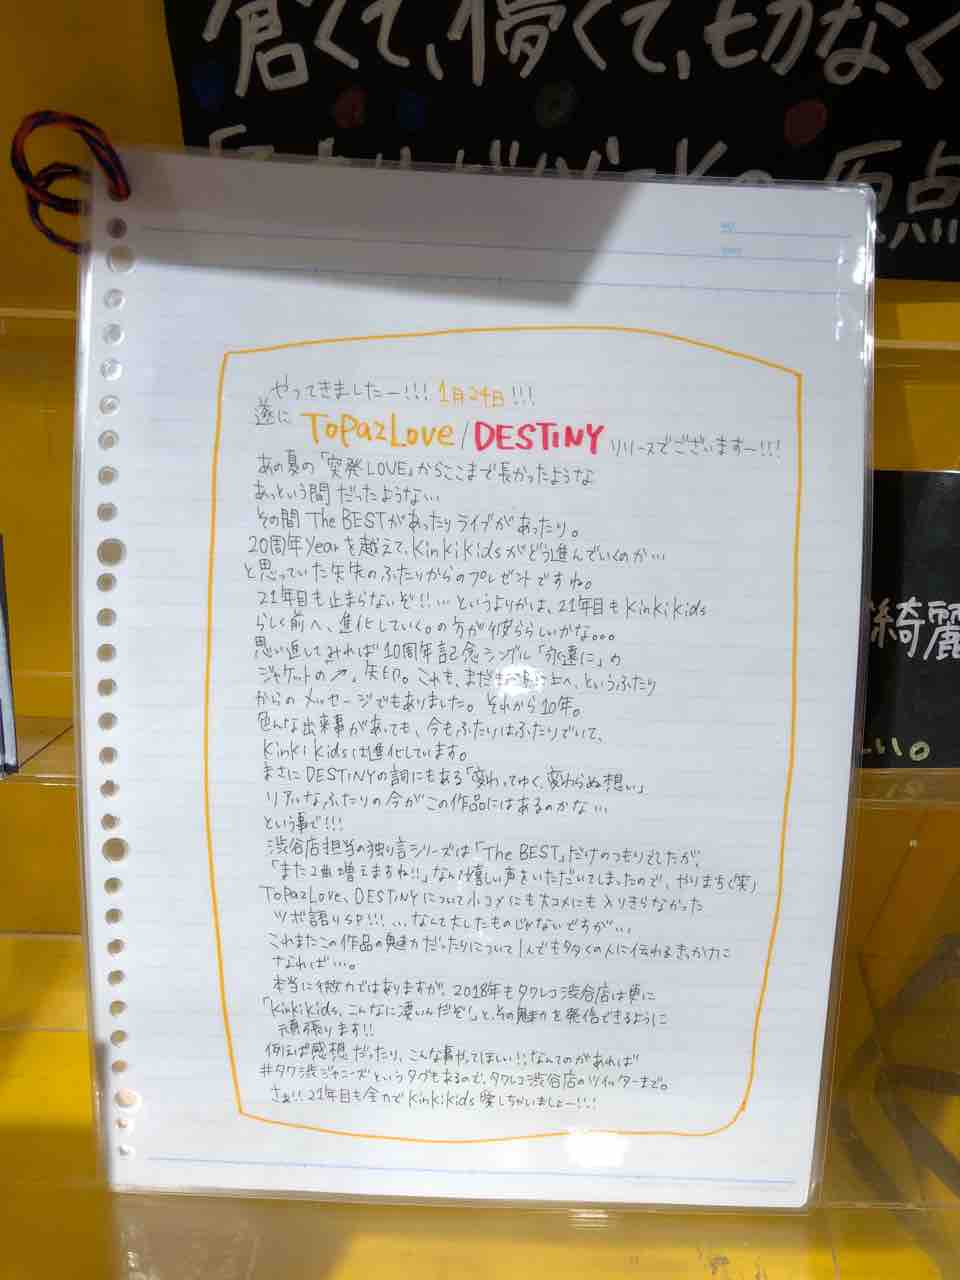 儚くて、もどかなく
原点
やってきましたー!!! 1月24日!!!
遂に Topaz Love / DESTINY リリースでございますー!!!
あの夏の「突発LOVE」からここまで長かったような
あっという間だったような…
その間 The BESTがあったりライブがあったり。
20周年Yearを越えて、KinKi Kidsがどう進んでいくのか…
と思っていた矢先のふたりからのプレゼントですね。
21年目も止まらないぞ!!…というよりかは、21年目もKinKi Kids
らしく前へ、進化していく。の方が彼ららしいかな。。。
思い返してみれば10周年記念シングル「永遠に」の
ジャケットの↗、矢印。これも、まだ上へ、というふたり
からのメッセージでもありました。それから10年。
色んな出来事があっても、今もふたりはふたりでいて、
KinKi Kidsは進化しています。
まさにDESTINYの詞にもある「変わってゆく、変わらぬ想い」
リアルなふたりの今がこの作品にはあるのかな…
という事で!!!
渋谷店担当の独り言シリーズは「The BEST」だけのつもりでしたが、
「また2曲増えますね!!」なんて嬉しい声をいただいてしまったので、やりまち(笑)
Topaz Love、DESTINYについて小コメにも大コメにも入りきらなかった
ツボ語りSP!!! …なんて大したものじゃないですが…
これまたこの作品の魅力だったりについて1人でも多くの人に伝わるきっかけに
なれば…。
本当に微力ではありますが、2018年もタワレコ渋谷店は更に
「KinKi Kids、こんなに凄いんだぞ!」と、その魅力を発信できるように
頑張ります!!
例えば感想だったり、こんな事やってほしい!!なんてのがあれば
#タワ渋ジャニーズというタグもあるので、タワレコ渋谷店のツイッターまで。
さぁ!!21年目も全力でKinKi Kids愛しちゃいましょー!!!
綺麗
い。